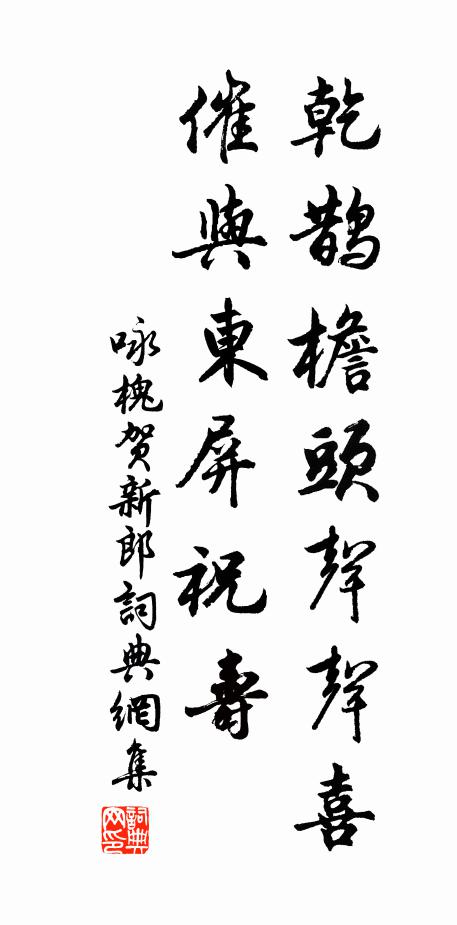 乾鹊檐頭聲聲喜
催與東屏祝壽
咏槐贺新郎詞典網集
詞典网印